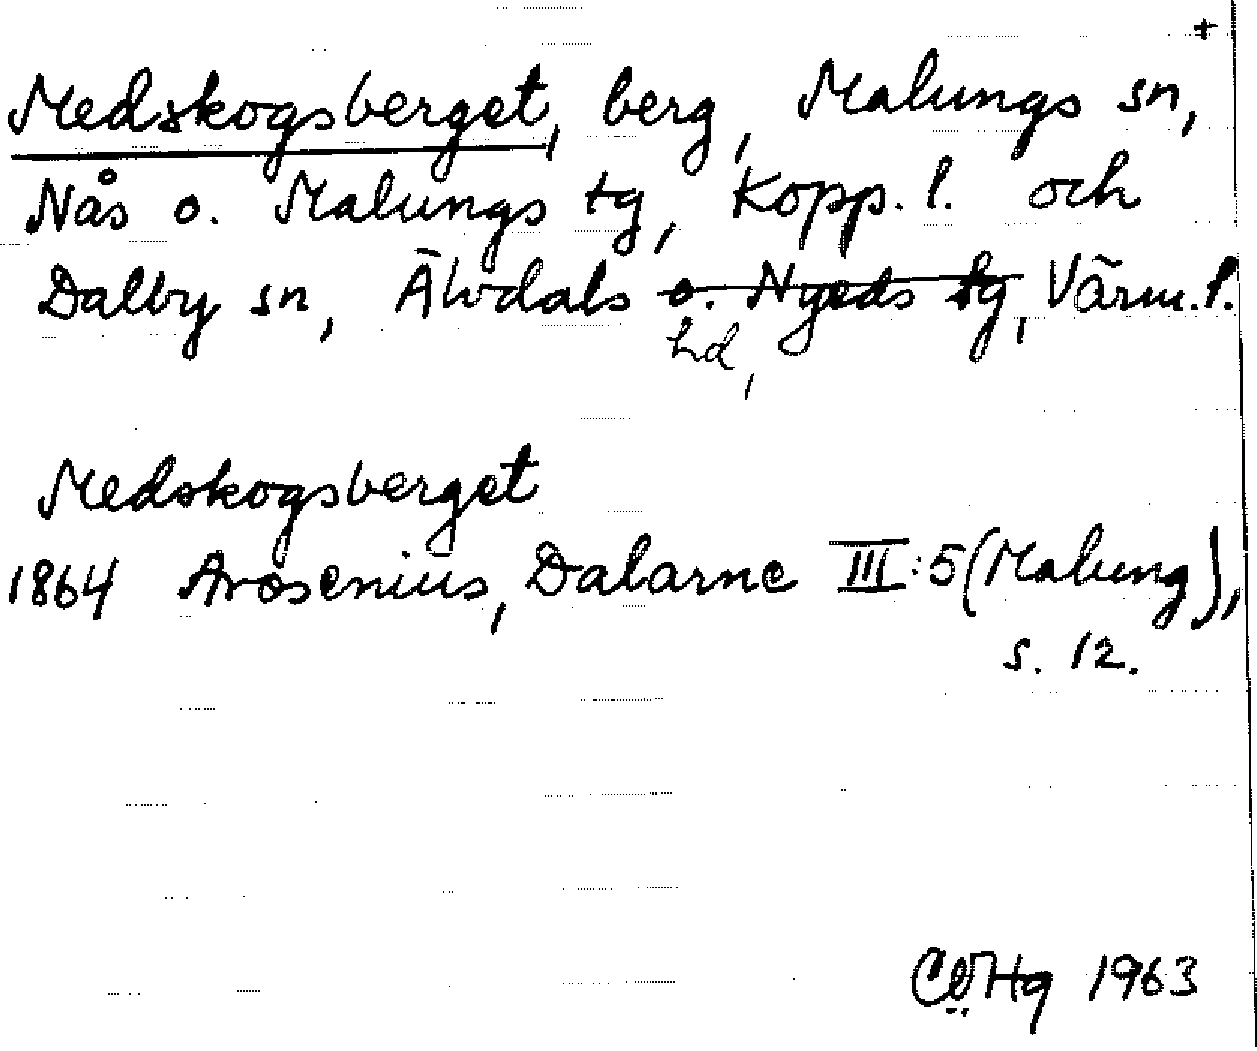 +
Medskogsberget, berg, Malungs sn,
Nås o. Malungs tg, Kopp. l. och
Dalby sn, Älvdals o. Nyeds tg, Värm. l.
hd,
Medskogsberget
1864 Arosenius, Dalarne III:5 (Malung),
s. 12.
1963